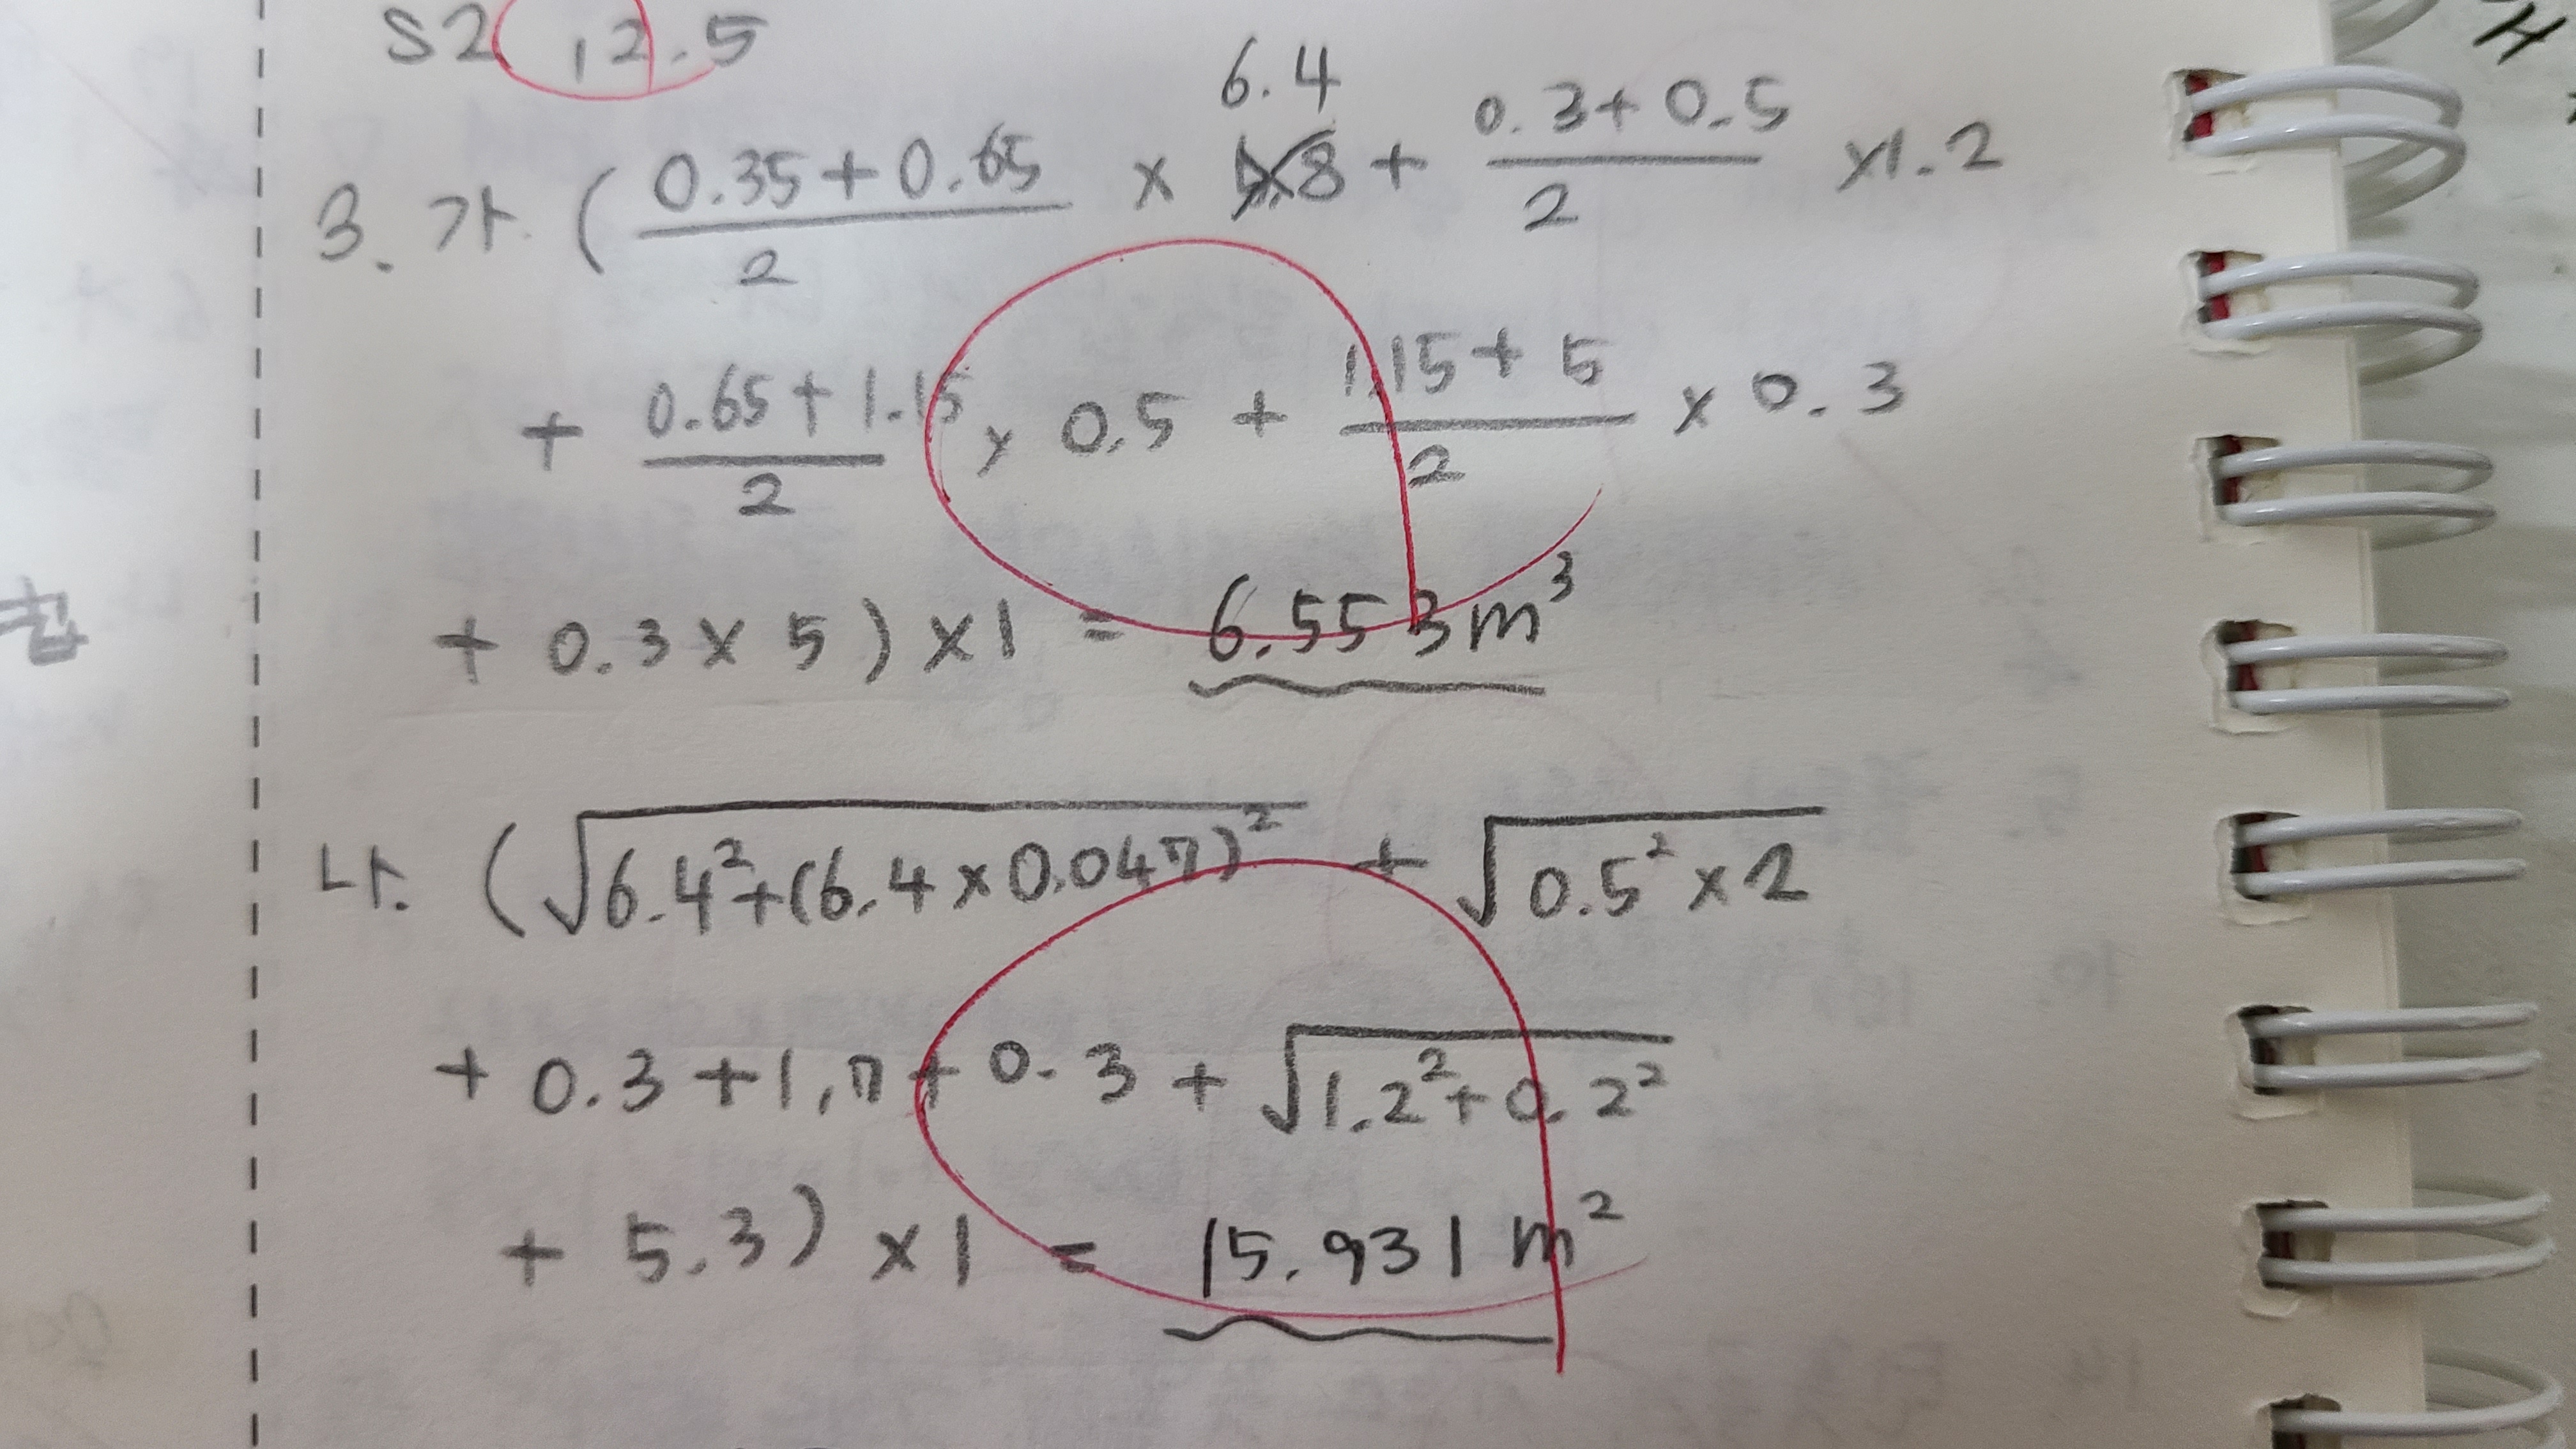 S2 12.5
6.4
3. 가. ( (0.35+0.65)/2 × + (0.3+0.5)/2 ×1.2
+ (0.65+1.15)/2 × 0.5 + (1.15+5)/2 × 0.3
+ 0.3 × 5) ×1 = 6.553m³
나. (√(6.4²+(6.4×0.047)²) + √(0.5²×2)
+ 0.3+1.7+0.3 + √(1.2²+0.2²)
+ 5.3) ×1 = 15.931 m²